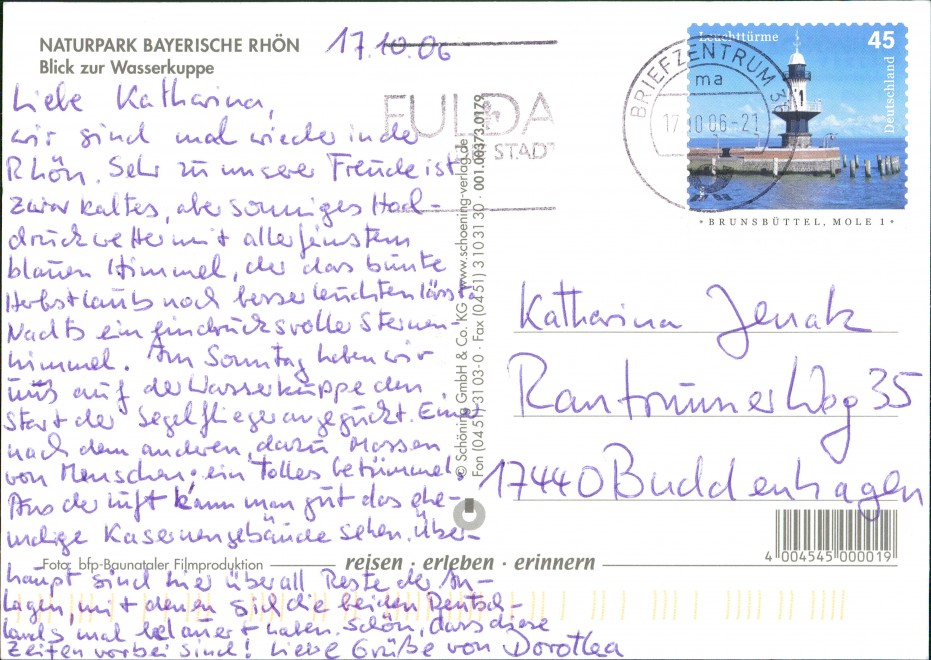 NATURPARK BAYERISCHE RHÖN
Blick zur Wasserkuppe
17.10.06
Liebe Katharina,
wir sind mal wieder in der
Rhön. Sehr zu unserer Freude ist
zwar kaltes, aber sonniges Hoch-
druckwetter mit allerfeinstem
blauen Himmel, der das bunte
Herbstlaub noch besser leuchten lässt.
Nachts ein eindrucksvoller Sternen-
himmel. Am Sonntag haben wir
uns auf der Wasserkuppe den
Start der Segelflieger angeguckt. Einer
nach dem anderen, dazu Massen
von Menschen; ein tolles Getümmel.
Aus der Luft kann man gut das ehe-
malige Kasernengebäude sehen. Über-
haupt sind hier überall Reste der An-
lagen, mit denen sich die beiden Deutsch-
lands mal belauert haben. Schön, dass diese
Zeiten vorbei sind! Liebe Grüße von Dorothea
FULDA
STADT
© Schöning GmbH & Co. KG · www.schoening-verlag.de
Fon (0451) 31 03-0 · Fax (0451) 3 10 31 30 · 001.00373.0179
BRIEFZENTRUM 36
ma
17.10.06-21
Leuchttürme
45
Deutschland
BRUNSBÜTTEL, MOLE 1
Katharina Jenak
Rantrumer Weg 35
17440 Buddenhagen
4 004545 000019
Foto: bfp-Baunataler Filmproduktion
reisen · erleben · erinnern